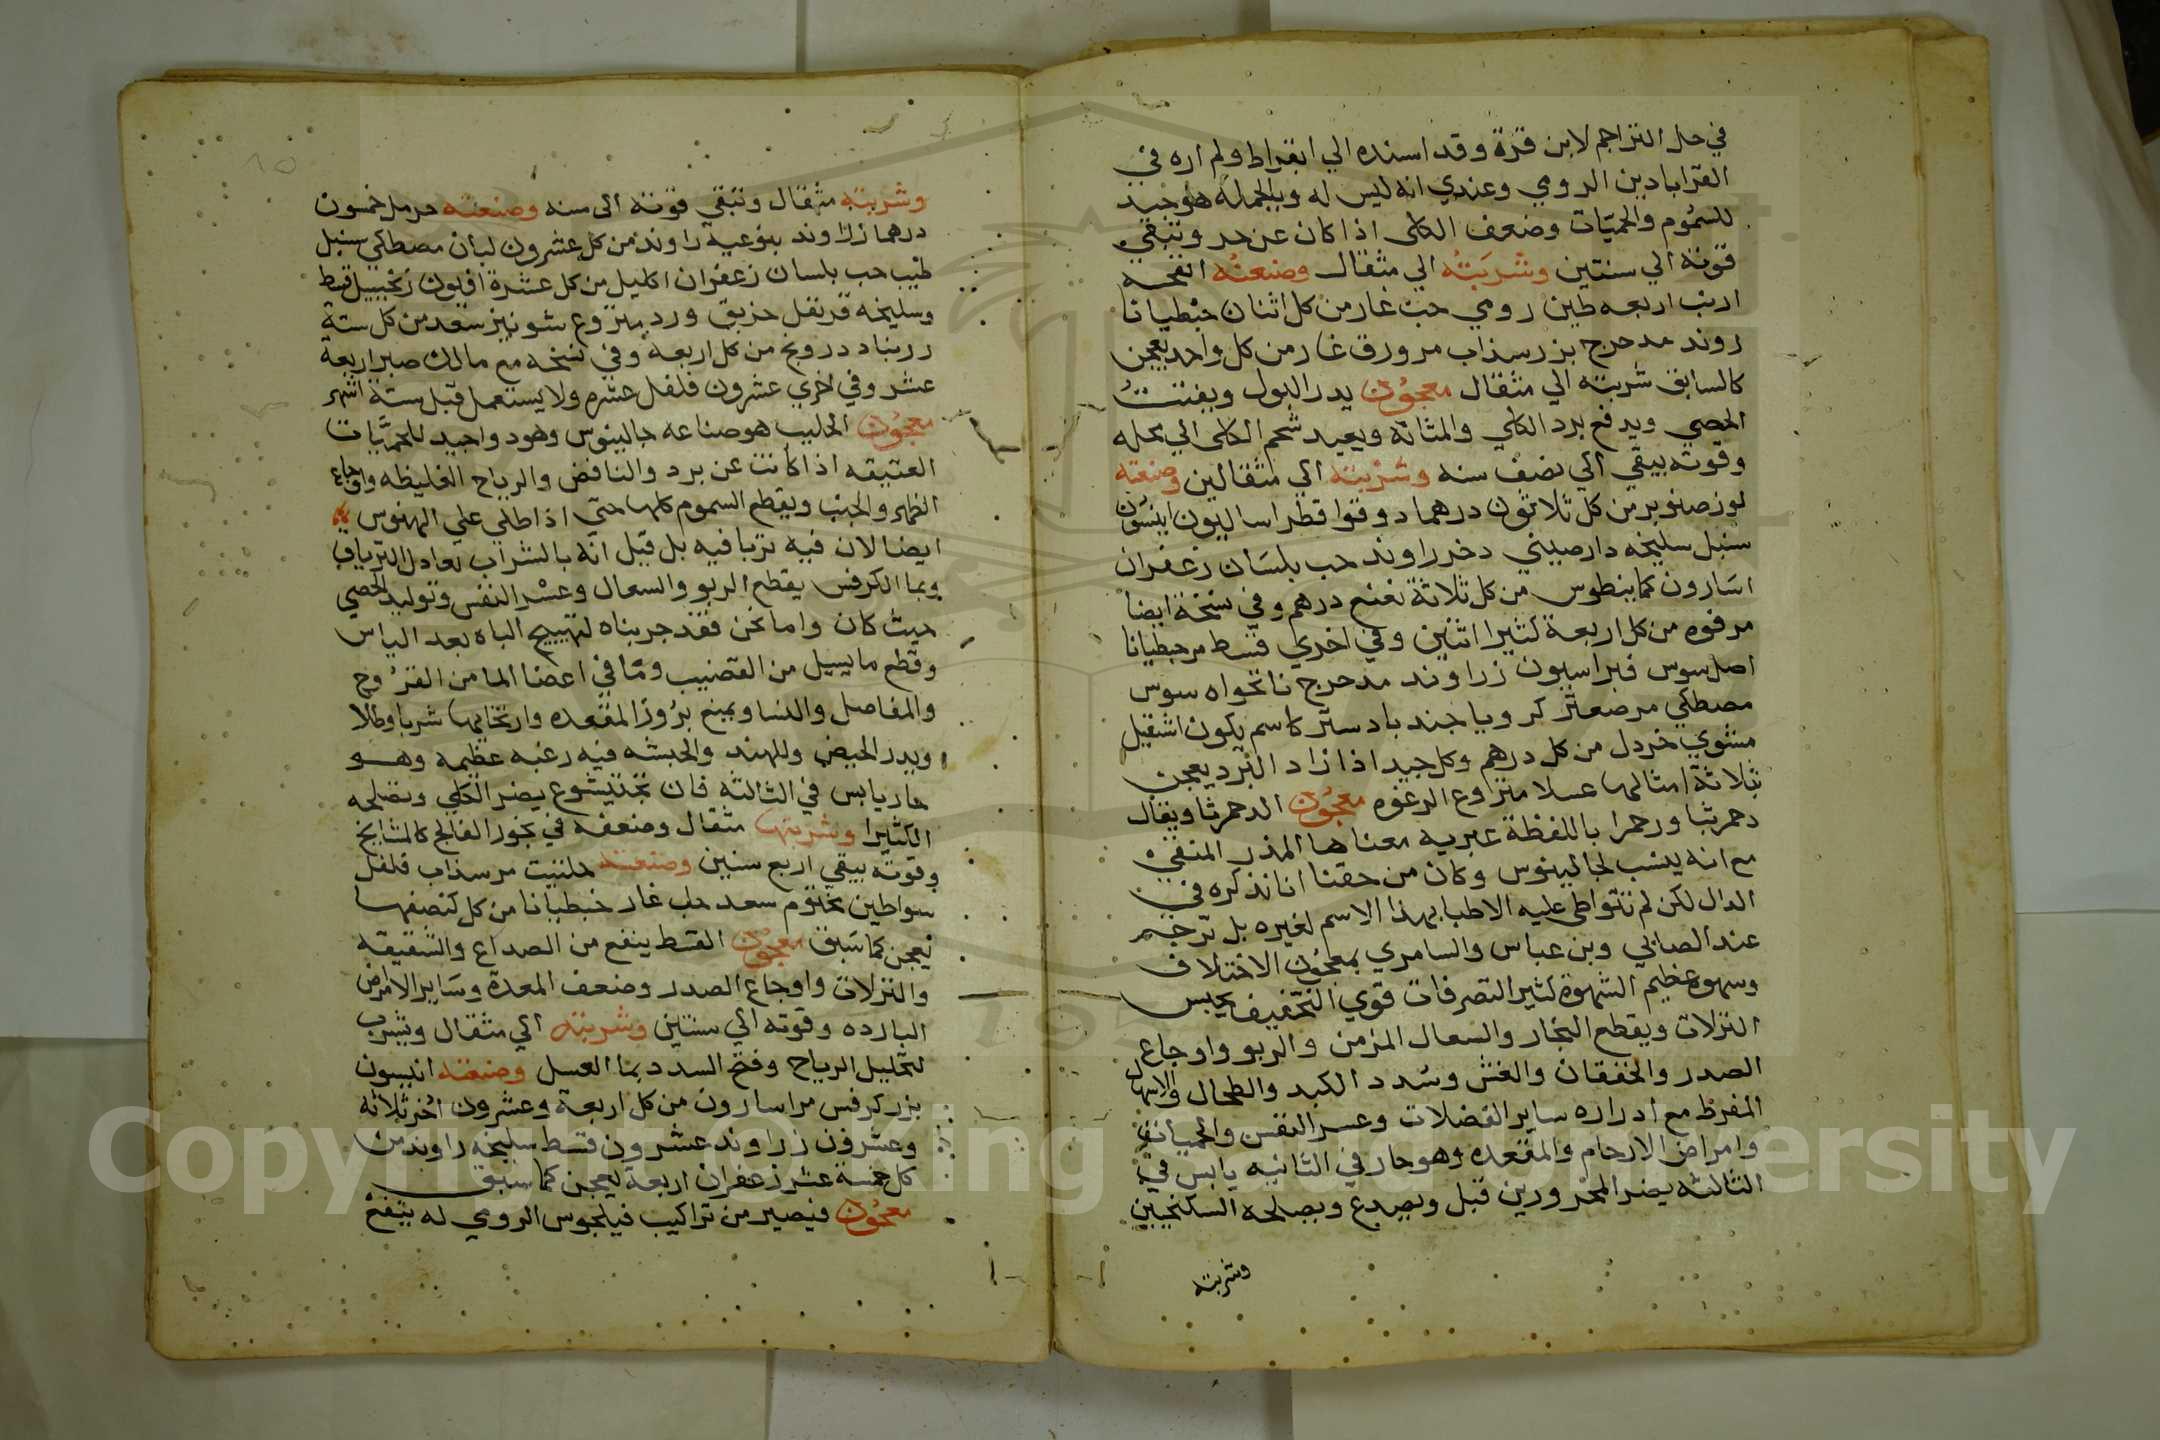 في حل التراجم لابن قرة وقد اسنده الي ابقراط ولم اره في
القرابادين الرومي وعندي انه ليس له وبالجملة هو جيد
للسموم والحميات وضعف الكلى اذا كان عن حر وتبقي
قوته الي سنتين وشربته الي مثقال وصنعته انفحه
ارنب اربعه طين رومي حب غار من كل اثنان جنطيانا
روند مدحرج بزر سذاب مر ورق غار من كل واحد يعجن
كالسابق شربته الي مثقال معجون يدر البول ويفتت
الحصي ويدفع برد الكلي والمثانة ويعيد شحم الكلى الي محله
وقوته يبقي الي نصف سنه وشربته الي مثقالين وصنعته
لوز صنوبر من كل ثلاثون درهما دوقوا قطراساليون انيسون
سنبل سليخه دارصيني دخر راوند حب بلسان زعفران
اسارون كمابيطوس من كل ثلاثة نعنع درهم وفي نسخة ايضا
مر فوه من كل اربعة كثيرا اثنين وفي اخري قسط مر جنطيانا
اصل سوس فبراسيون زراوند مدحرج نانخواه سوس
مصطكي مر صعتر كرويا جند بادستر كاسم يكون اشقيل
مشوي خردل من كل درهم وكل جيد اذا زاد البرد يعجن
بثلاثة امثالها عسلا منزاوع الرغوه معجون الدحمرثا ويقال
دحمرثيا ورحمرا باللفظة عبريه معناها المذر المنقي
مع انه ينسب لجالينوس وكان من حقنا ان نذكره في
الدال لكن لم تتواطي عليه الاطبا بهذا الاسم لغيره بل ترجم
عند الصابي وبن عباس والسامري بمعجون الاختلاف
وسموه عظيم الشهوة كثير التصرفات قوي التخفيف يحبس
النزلات ويقطع البخار والسعال المزمن والربو واوجاع
الصدر والخفقان والغش وسدد الكبد والطحال والاسهال
المفرط مع ادراره ساير الفضلات وعسر النفس والحميات
وامراض الارحام والمقعده وهو حار في الثانيه يابس في
الثالثه يضر المحرورين قبل ويصدع ويصلحه السكنجبين
وشربته
وشربته مثقال وتبقي قوته الى سنه وصنعته حرمل خمسون
درهما زراوند بنوعية راوند من كل عشرون لبان مصطكي سنبل
طيب حب بلسان زعفران اكليل من كل عشرة افيون زنجبيل قسط
وسليخه قرنفل خربق ورد منزوع شونيز سعد من كل ستة
زرنباد درونج من كل اربعة وفي نسخه مع مالك صبر اربعة
عشر وفي اخري عشرون فلفل عشره ولا يستعمل قبل ستة اشهر
معجون الحليب هو صناعه جالينوس وهود واجيد للحميات
العتيقه اذا كانت عن برد والنافض والرياح الغليظه واوجاع
الظهر والجنب ويقطع السموم كلها حتي اذا طلي علي المنهوس
ايضا لان فيه ترياقيه بل قيل انه بالشراب تعادل الترياق
وبما الكرفس يقطع الربو والسعال وعسر النفس وتوليد الحصي
حيث كان واما نحن فقد جربناه لتهييج الباه بعد الياس
وقطع ما يسيل من القضيب ومما في اعضا الما من القروح
والمفاصل والنسا ويمنع بروز المقعده وارتخايها شربا وطلا
ويدر الحيض وللهند والحبشه فيه رغبه عظيمه وهو
حار يابس في الثالثه قان بختيشوع يضر الكلي وتصلحه
الكثيرا وشربتها مثقال وضعفه في بخور الفالج كالمشايخ
وقوته يبقي اربع سنين وصنعته حلتيت مر سذاب فلفل
سوا طين مختوم سعد حب غار جنطيانا من كل كنصفها
يعجن كما سبق معجون القسط ينفع من الصداع والشقيقه
والنزلات واوجاع الصدر وضعف المعدة وساير الامراض
البارده وقوته الي سنتين وشربته الي مثقال ويشرب
لتحليل الرياح وفتح السدد بما العسل وصنعته انيسون
بزر كرفس مر اسارون من كل اربعة وعشرون اخر ثلاثه
وعشرون زراوند عشرون قسط سليخه راوند من
كل خمسة عشر زعفران اربعة يعجن كما سبق
معجون فيصير من تراكيب فيلجوس الرومي له ينفع